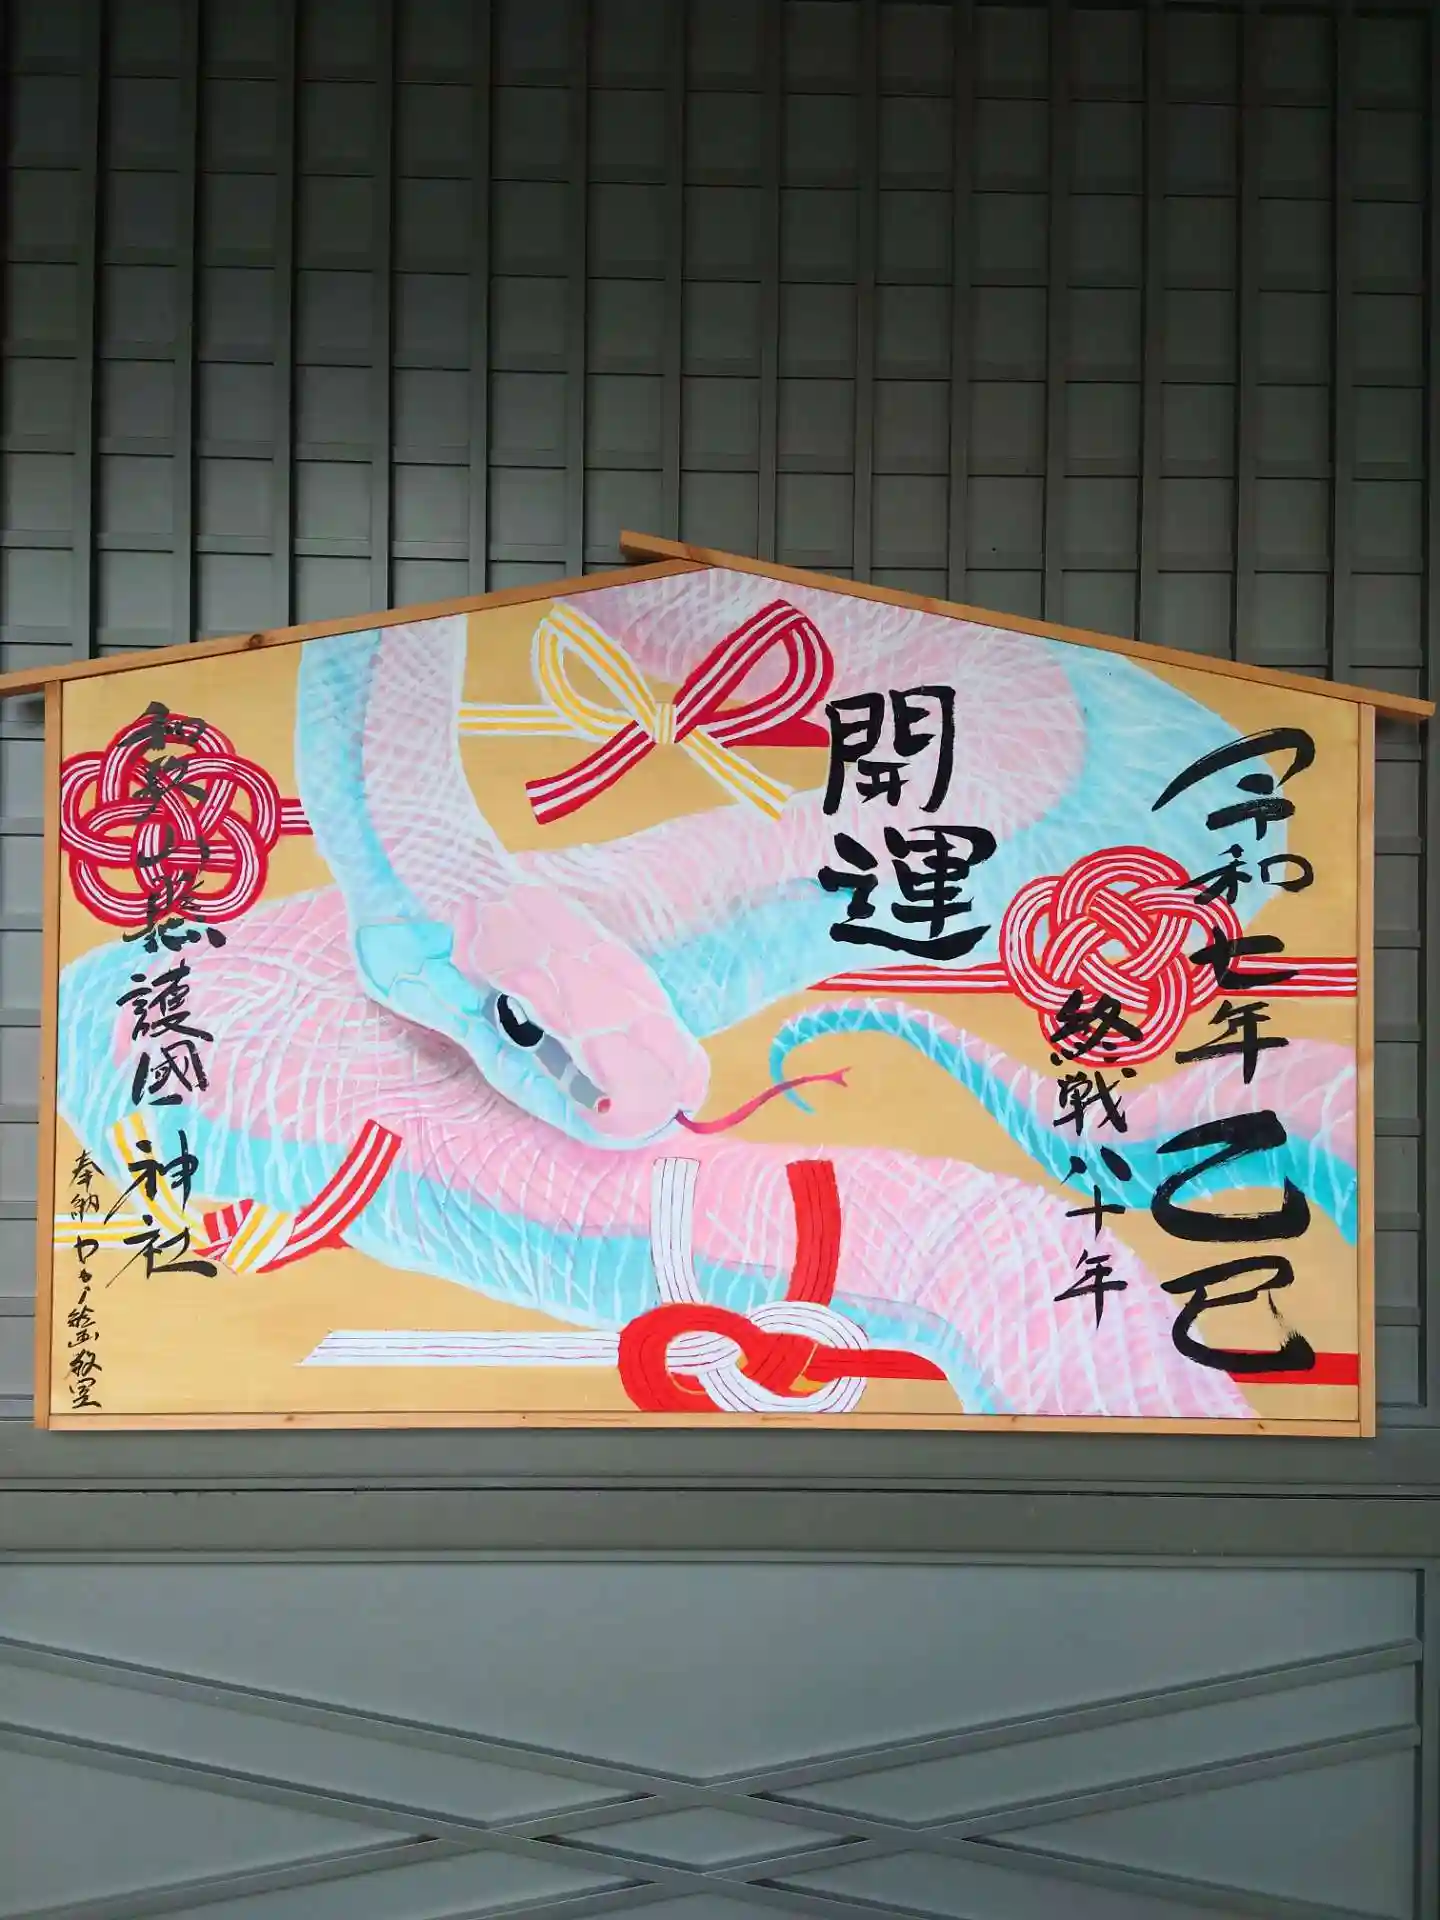 令和七年 乙巳
終戦八十年
開運
和歌山縣護國神社
奉納
絵画教室